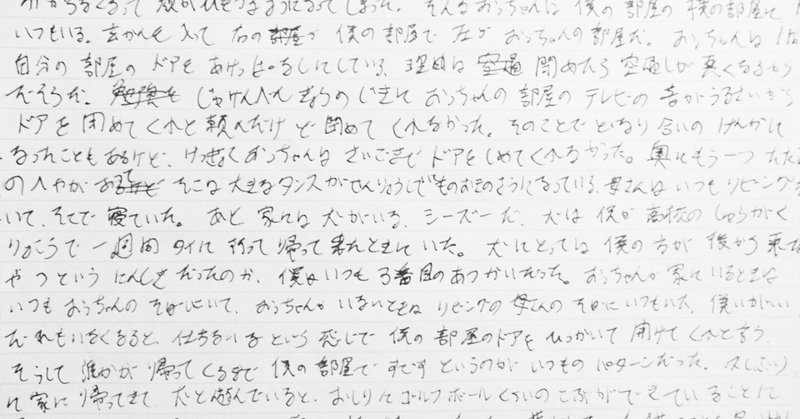 そんなおっちゃんは 僕の部屋の横の部屋に
いつもいる。玄かんを入って右の部屋が僕の部屋で左がおっちゃんの部屋だ。おっちゃんは
自分の部屋のドアをあけっぱなしにしている。理由は 閉めたら空通しが悪くなるから
だそうだ。じゅけんべんきょうのじきにおっちゃんの部屋のテレビの音がうるさいから
ドアを閉めてくれと頼んだけど閉めてくれなかった。そのことでどなり合いのけんかに
なったこともあるけど、けっきょくおっちゃんはさいごまでドアをしめてくれなかった。奥にもう一つたたみ
のへやがあって そこは大きなタンスがせんりょうしてものおきのようになっている。母さんはいつもリビングに
いて、そこで寝ていた。あと家には犬がいる。シーズーだ。犬は僕が高校のしゅうがく
りょこうで一週間タイに行って帰って来たときにいた。犬にとっては僕の方が後から来た
やつというにんしきだったのか、僕はいつも3番目のあつかいだった。おっちゃんが家にいるときは
いつもおっちゃんのそばにいて、おっちゃんがいないときはリビングの母さんのそばにいつもいた。僕いがいに
だれもいなくなると、仕方ないなという感じで僕の部屋のドアをひっかいて開けてくれと言う。
そうして誰かが帰ってくるまで僕の部屋ですごすというのがいつものパターンだった。
に家に帰ってきて、犬と遊んでいると、おしりにゴルフボールくらいのこぶができていることに